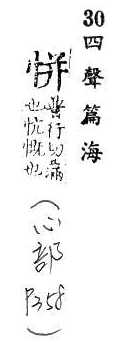 30 四聲篇海
恲 普行切滿
也忼慨也
(心部 P358)